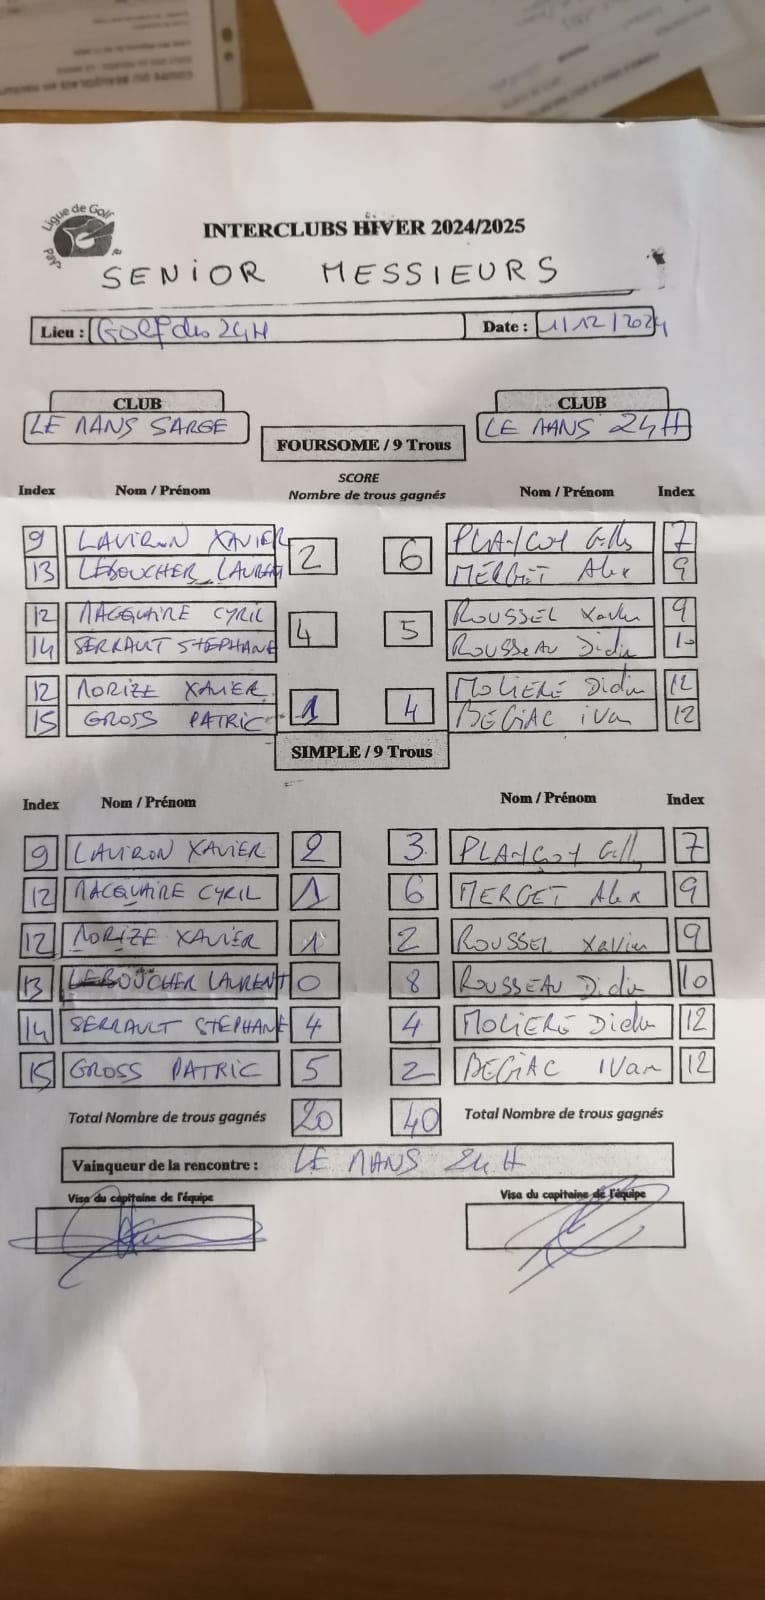 COUPE DU BEAUJOLAIS
Ligue de Golf
INTERCLUBS HIVER 2024/2025
SENIOR MESSIEURS
Lieu : Golf des 24H Date : 11/12/2024
CLUB CLUB
LE MANS SARGE LE MANS 24H
FOURSOME / 9 Trous
SCORE
Index Nom / Prénom Nombre de trous gagnés Nom / Prénom Index
9 LAVIRON XAVIER 2 6 PLANÇOY Gilles 7
13 LEBOUCHER LAURENT MERGET Alex 9
12 MACQUAIRE CYRIL 4 5 ROUSSEL Xavier 9
14 SERRAULT STEPHANE ROUSSEAU Didier 10
12 MORIZE XAVIER 1 4 MOLIERE Didier 12
15 GROSS PATRIC BEGIAC iVan 12
SIMPLE / 9 Trous
Index Nom / Prénom Nom / Prénom Index
9 LAVIRON XAVIER 2 3 PLANÇOY Gilles 7
12 MACQUAIRE CYRIL 1 6 MERGET Alex 9
12 MORIZE XAVIER 1 2 ROUSSEL Xavier 9
13 LEBOUCHER LAURENT 0 8 ROUSSEAU Didier 10
14 SERRAULT STEPHANE 4 4 MOLIERE Didier 12
15 GROSS PATRIC 5 2 BEGIAC IVan 12
Total Nombre de trous gagnés 20 40 Total Nombre de trous gagnés
Vainqueur de la rencontre : LE MANS 24H
Visa du capitaine de l'équipe Visa du capitaine de l'équipe